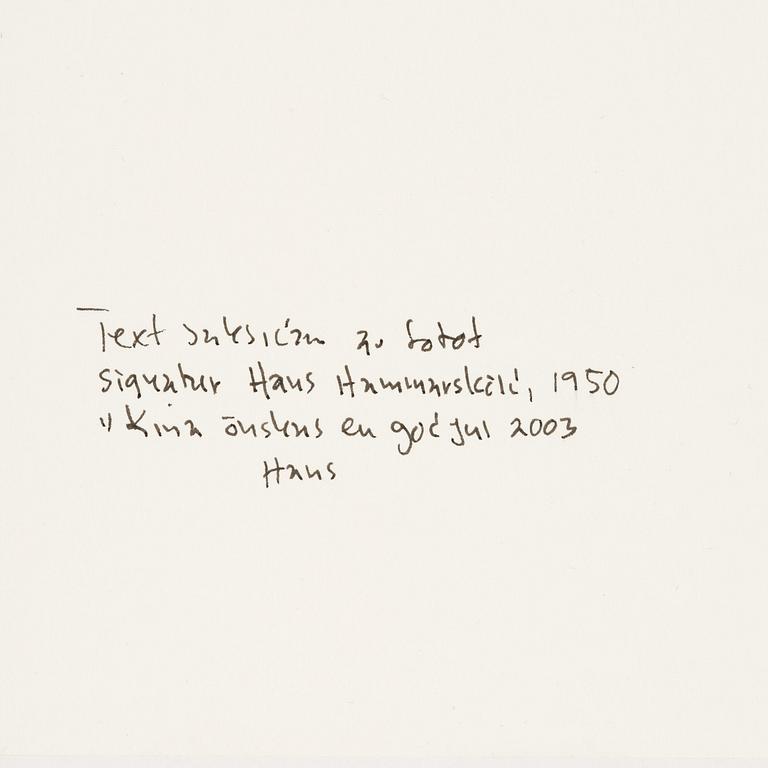 Text baksidan av fotot
signatur Hans Hammarskiöld, 1950
" Kina önskas en god jul 2003
Hans